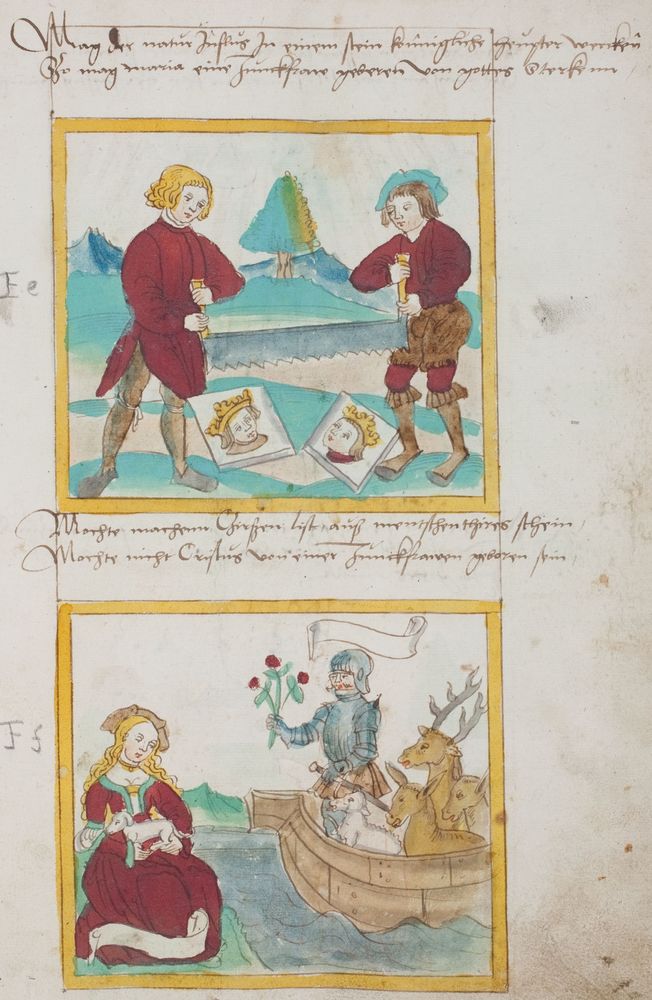 Mag der natur Influs In einem stein kunigliche heupter wercken
So mag maria eine Junckfraw geberen von gottes sterk
Fe
Mochte machenn list auß mentschen thires schein
Mochte nicht Cristus von einer Junckfrawen geboren sein
Ff